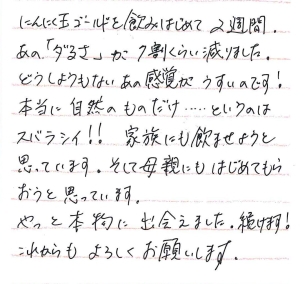 にんにく玉ゴールドを飲みはじめて2週間.
あの「ダるさ」が7割くらい減りました.
どうしようもないあの感覚がうすいのです!
本当に自然のものだけ……というのは
スバラシイ!! 家族にも飲ませようと
思っています.そして母親にもはじめてもら
おうと思っています.
やっと本物に出会えました.続けます!
これからもよろしくお願いします.